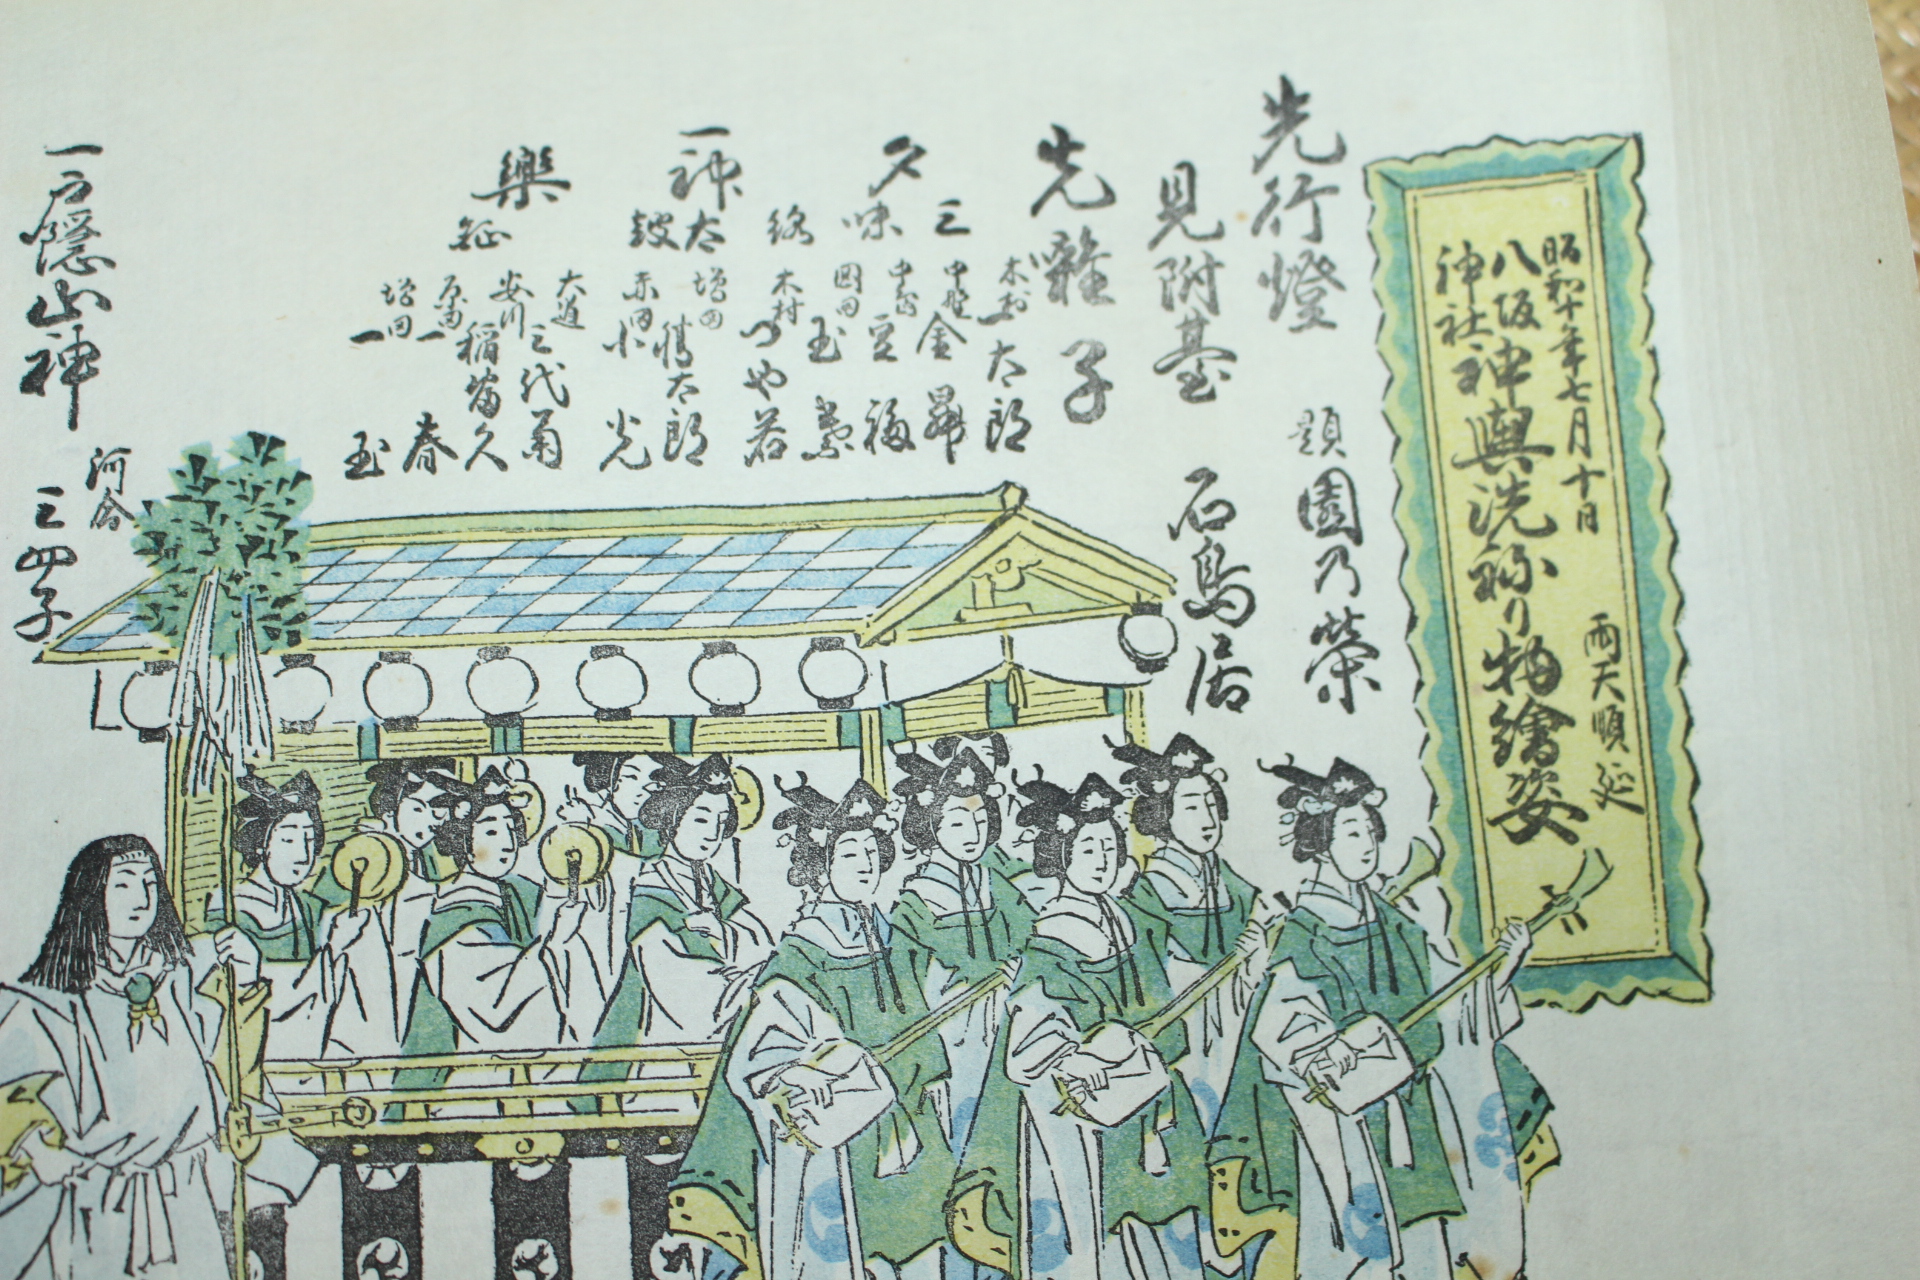 昭和十年七月十日
雨天順延
八坂神社
神輿洗ねり物繪姿
先行燈
題園乃榮
見附臺
石鳥居
先囃子
三味
大太郎
中野金昇
夕
園田玉葉
木村つや若
神
太鼓
増田勝太郎
赤田小光
樂
鉦
大道三代菊
安川稲富久
一春
増田一玉
一戸隠山神
河合三四子